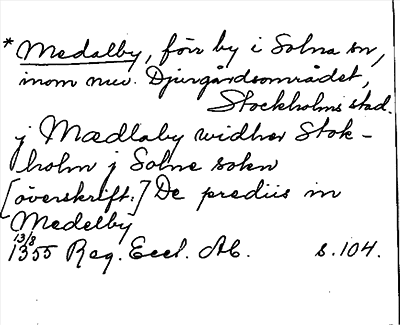 * Medalby, förr by i Solna sn,
inom nuv. Djurgårdsområdet,
Stockholms stad.
j Mædlaby widher Stok-
holm j Solne sokn
[överskrift:] De prediis in
Medelby
13/8
1355 Reg. Eccl. Ab. s. 104.